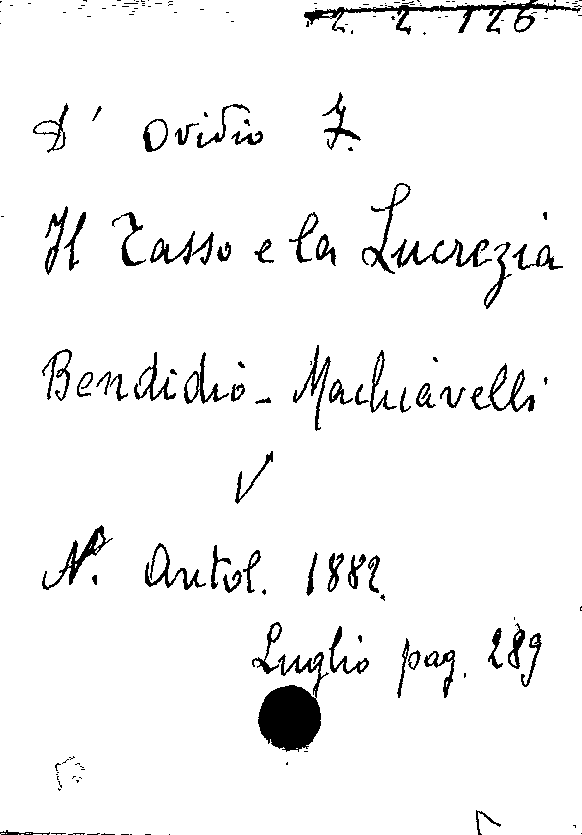 2. 2. 126
D' Ovidio F.
Il Tasso e la Lucrezia
Bendidio - Machiavelli
N. Antol. 1882.
Luglio pag. 289